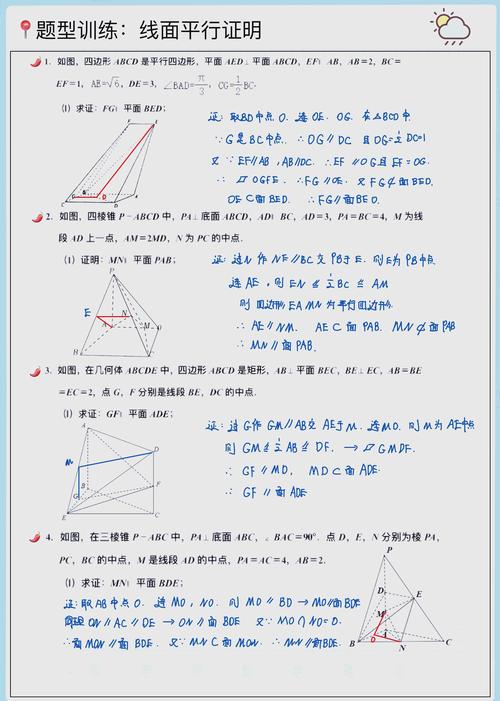 题型训练：线面平行证明
1. 如图，四边形 ABCD 是平行四边形，平面 AED⊥平面 ABCD，EF∥AB，AB=2，BC=
EF=1，AE=√6，DE=3，∠BAD=π/3，CG=1/2BC.
(1) 求证：FG∥平面 BED；
证：取BD中点O. 连OE. OG. 在△BCD中
∵G是BC中点. ∴OG∥DC 且OG=1/2DC=1
又∵EF∥AB,AB∥DC. ∴EF∥OG且EF=OG.
∴▱OGFE. ∴FG∥OE. 又FG⊄面BED.
OE⊂面BED. ∴FG∥面BED.
2. 如图，四棱锥 P-ABCD 中，PA⊥底面 ABCD，AD∥BC，AD=3，PA=BC=4，M 为线
段 AD 上一点，AM=2MD，N 为 PC 的中点.
(1) 证明：MN∥平面 PAB；
证：过N作NE∥BC交PB于E. 则E为PB中点
连AE，则EN∥=1/2BC∥=AM
则四边形EAMN为平行四边形
∴AE∥NM. AE⊂面PAB. MN⊄面PAB
∴MN∥面PAB.
P
E
N
A
M
D
B
3. 如图，在几何体 ABCDE 中，四边形 ABCD 是矩形，AB⊥平面 BEC，BE⊥EC，AB=BE
=EC=2，点 G，F 分别是线段 BE，DC 的中点.
(1) 求证：GF∥平面 ADE；
证：过G作GM∥AB交AE于M. 连MD. 则M为AE中点
则GM∥=1/2AB∥=DF. →▱GMDF.
∴GF∥MD, MD⊂面ADE.
∴GF∥面ADE
A
D
M
B
F
G
E
C
4. 如图，在三棱锥 P-ABC 中，PA⊥底面 ABC，∠BAC=90°. 点 D，E，N 分别为棱 PA，
PC，BC 的中点，M 是线段 AD 的中点，PA=AC=4，AB=2.
(1) 求证：MN∥平面 BDE；
证：取AB中点O. 连MO，NO. 则MO∥BD→MO∥面BDE
ON∥AC∥DE→ON∥面BDE 又∵MO∩NO=O.
∴面MON∥面BDE. 又∵MN⊂面MON. ∴MN∥面BDE.
P
D
E
M
A
O
B
N
C